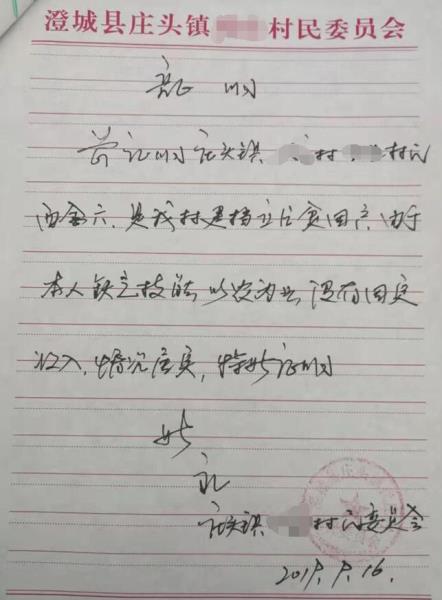 澄城县庄头镇 村民委员会
证 明
兹证明庄头镇 村 村民
是我村建档立卡贫困户,由于
本人缺乏技能,以农为业,没有固定
收入,情况属实,特此证明
此
证
庄头镇 村民委员会
2019.9.16.